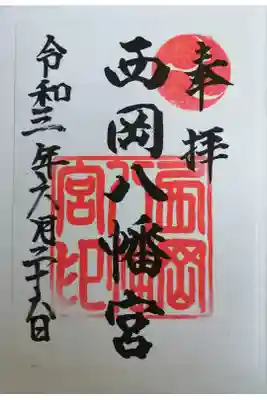 奉拝
西岡八幡宮
令和三年六月二十六日
西岡
八幡
宮印